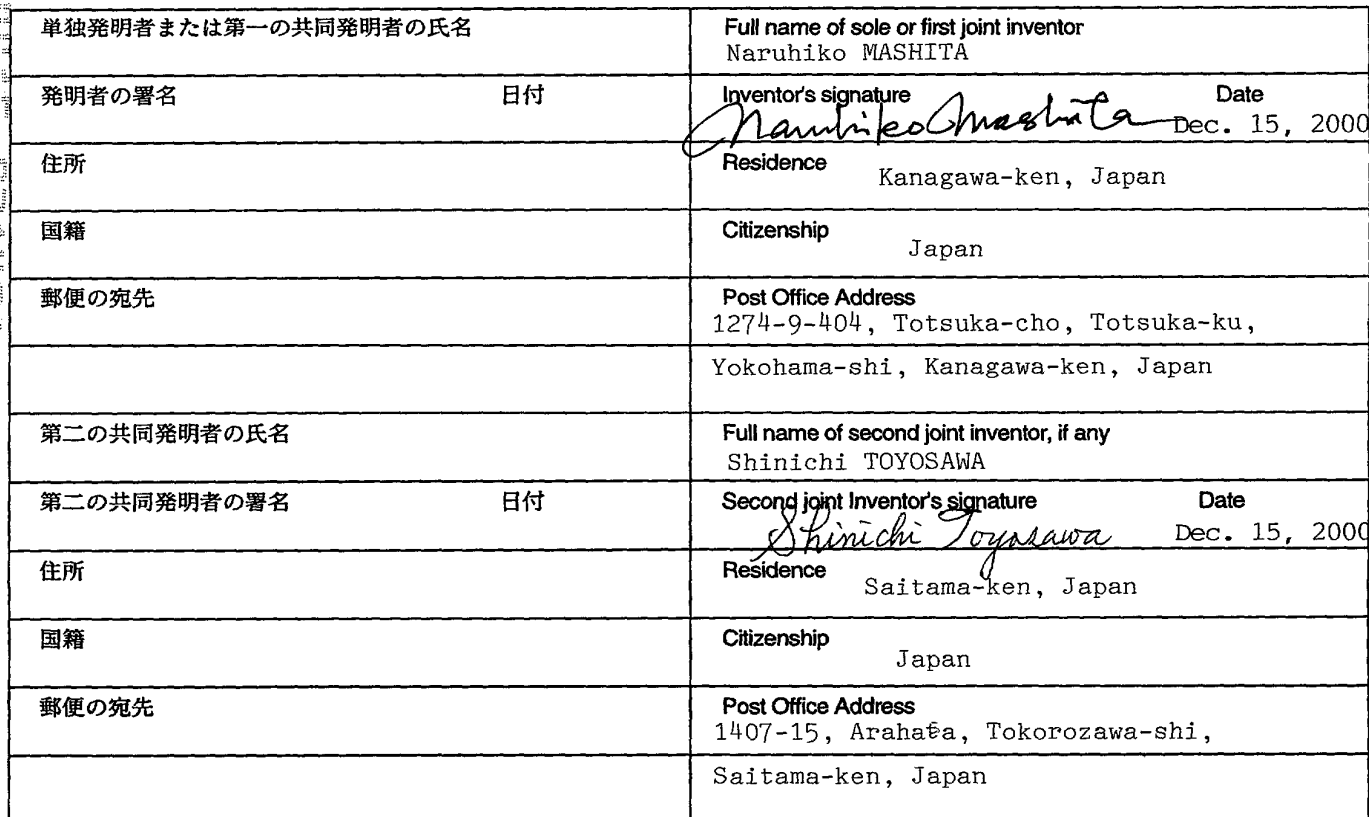 単独発明者または第一の共同発明者の氏名
Full name of sole or first joint inventor
Naruhiko MASHITA
発明者の署名 日付
Inventor's signature Date
Naruhiko Mashita Dec. 15, 2000
住所
Residence
Kanagawa-ken, Japan
国籍
Citizenship
Japan
郵便の宛先
Post Office Address
1274-9-404, Totsuka-cho, Totsuka-ku,
Yokohama-shi, Kanagawa-ken, Japan
第二の共同発明者の氏名
Full name of second joint inventor, if any
Shinichi TOYOSAWA
第二の共同発明者の署名 日付
Second joint Inventor's signature Date
Shinichi Toyosawa Dec. 15, 2000
住所
Residence
Saitama-ken, Japan
国籍
Citizenship
Japan
郵便の宛先
Post Office Address
1407-15, Arahata, Tokorozawa-shi,
Saitama-ken, Japan